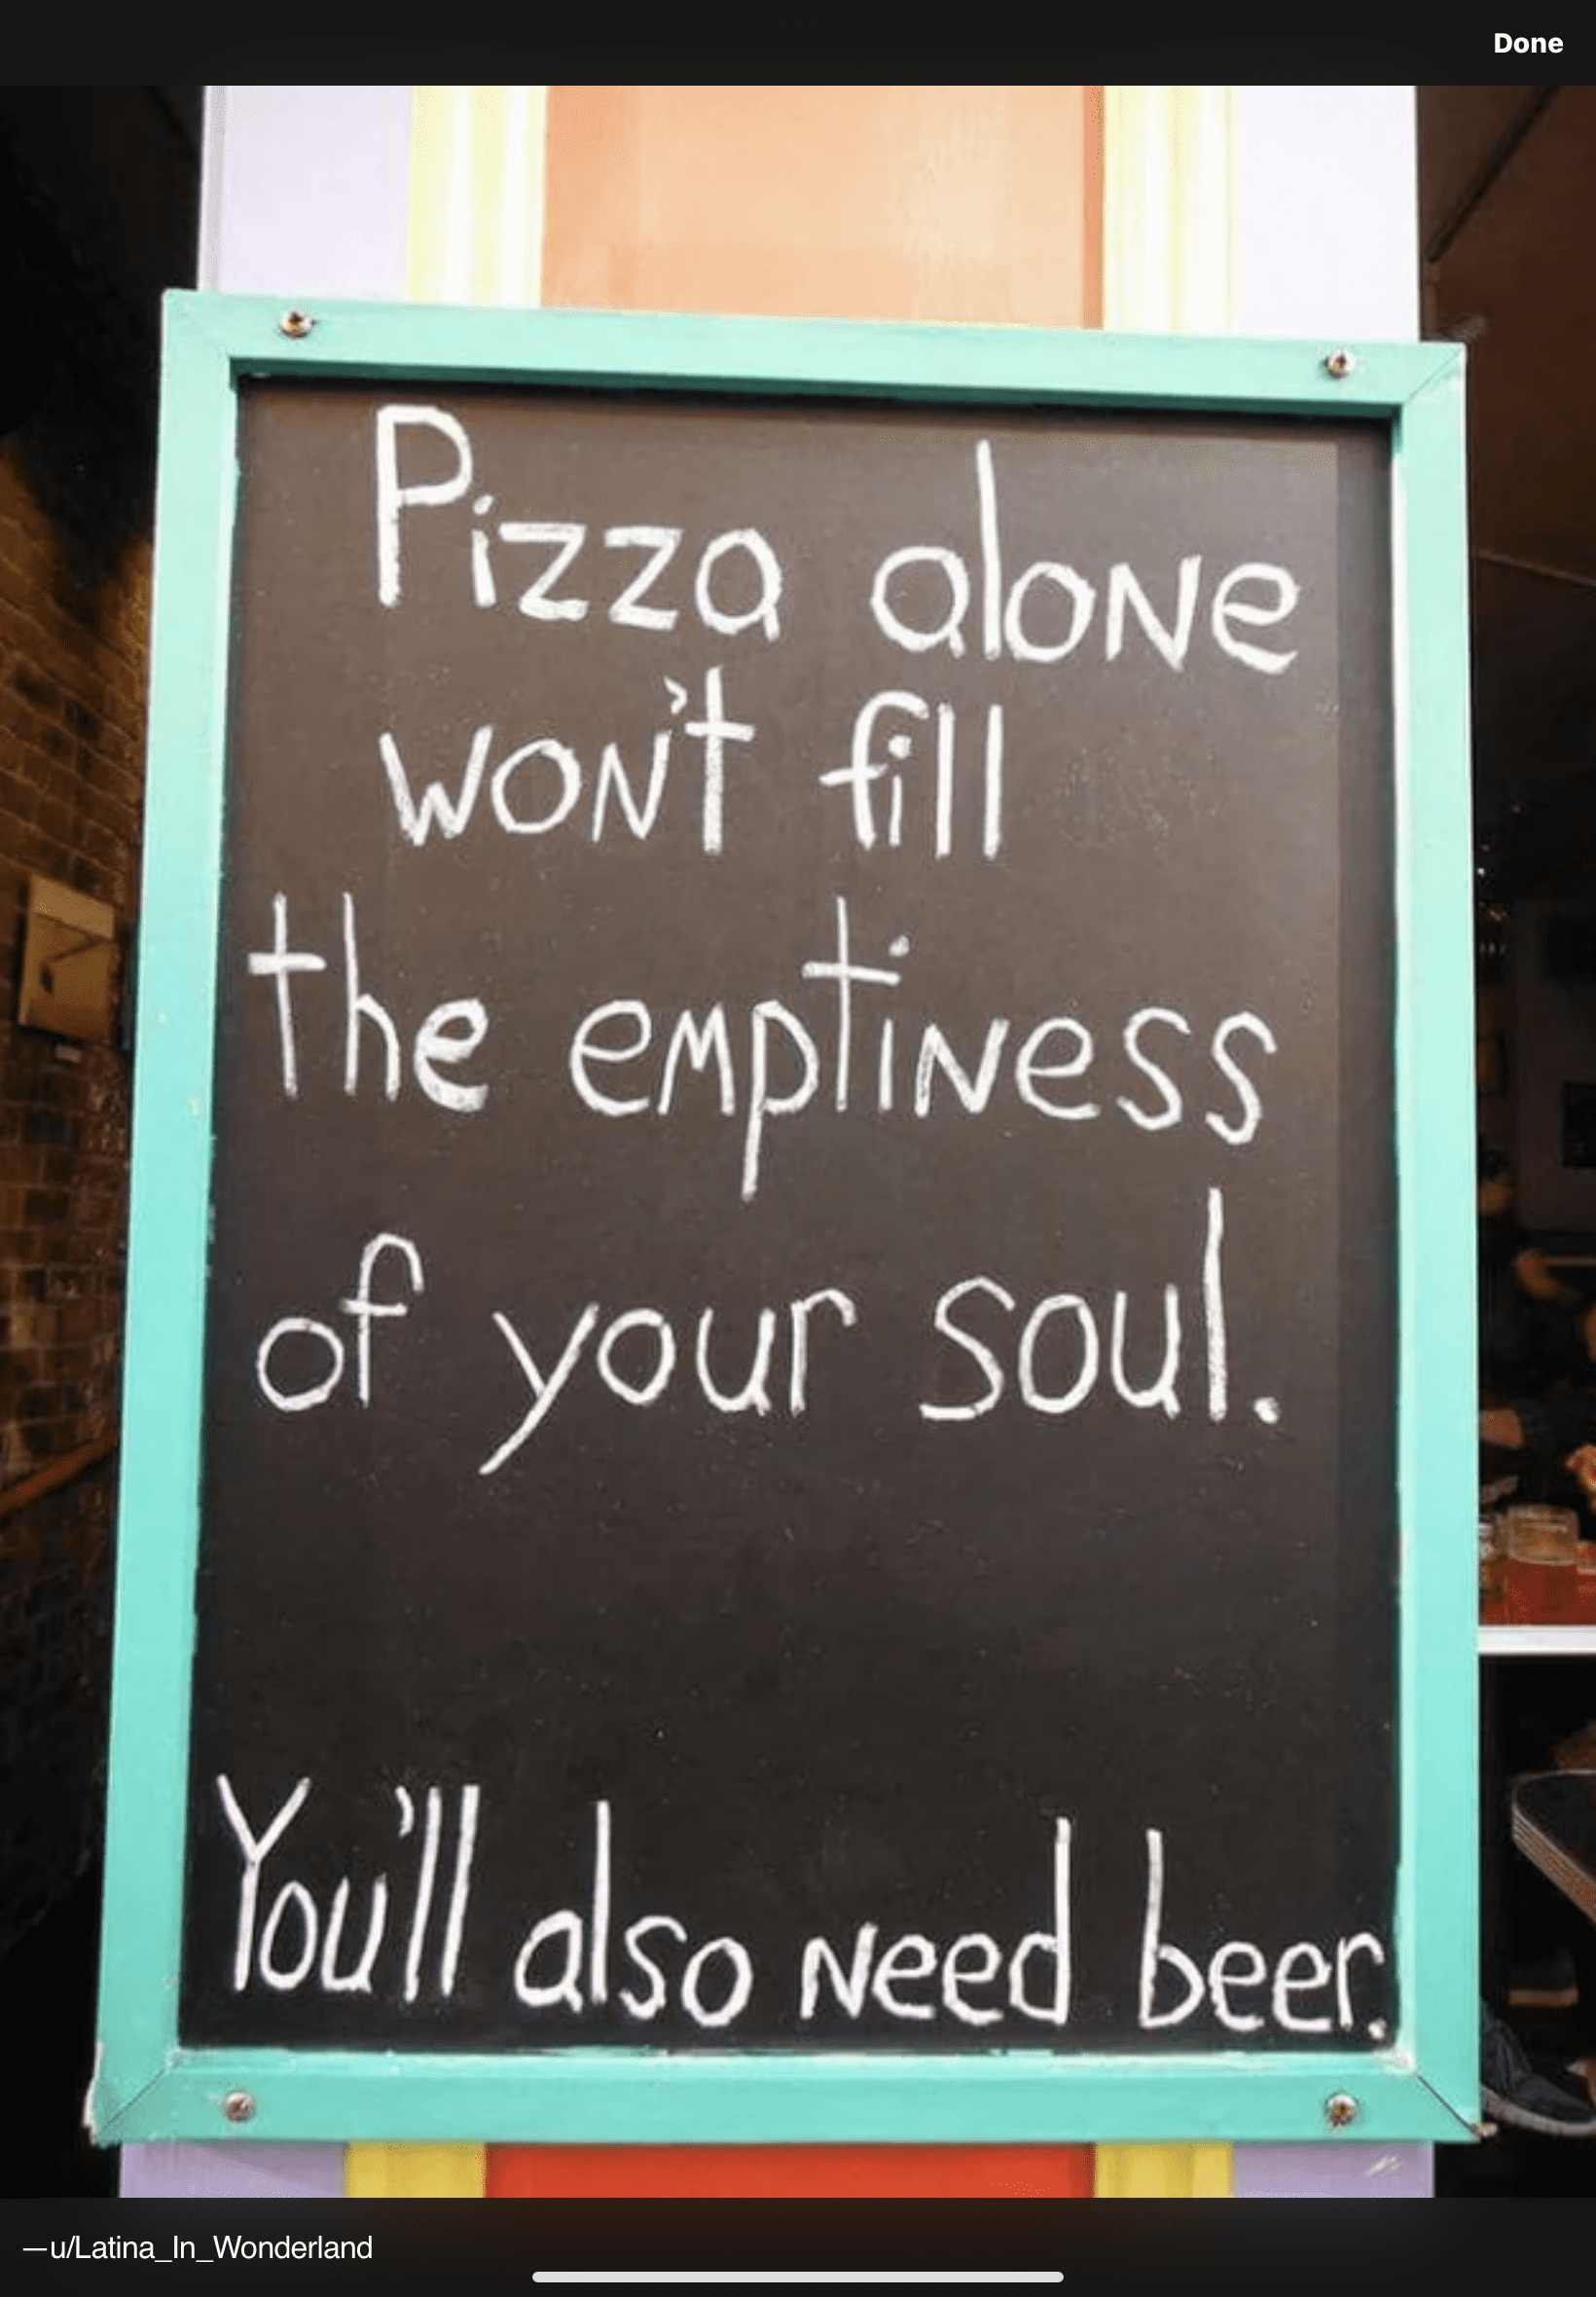 Done
Pizza alone
won't fill
the emptiness
of your soul.
You'll also need beer.
—u/Latina_In_Wonderland